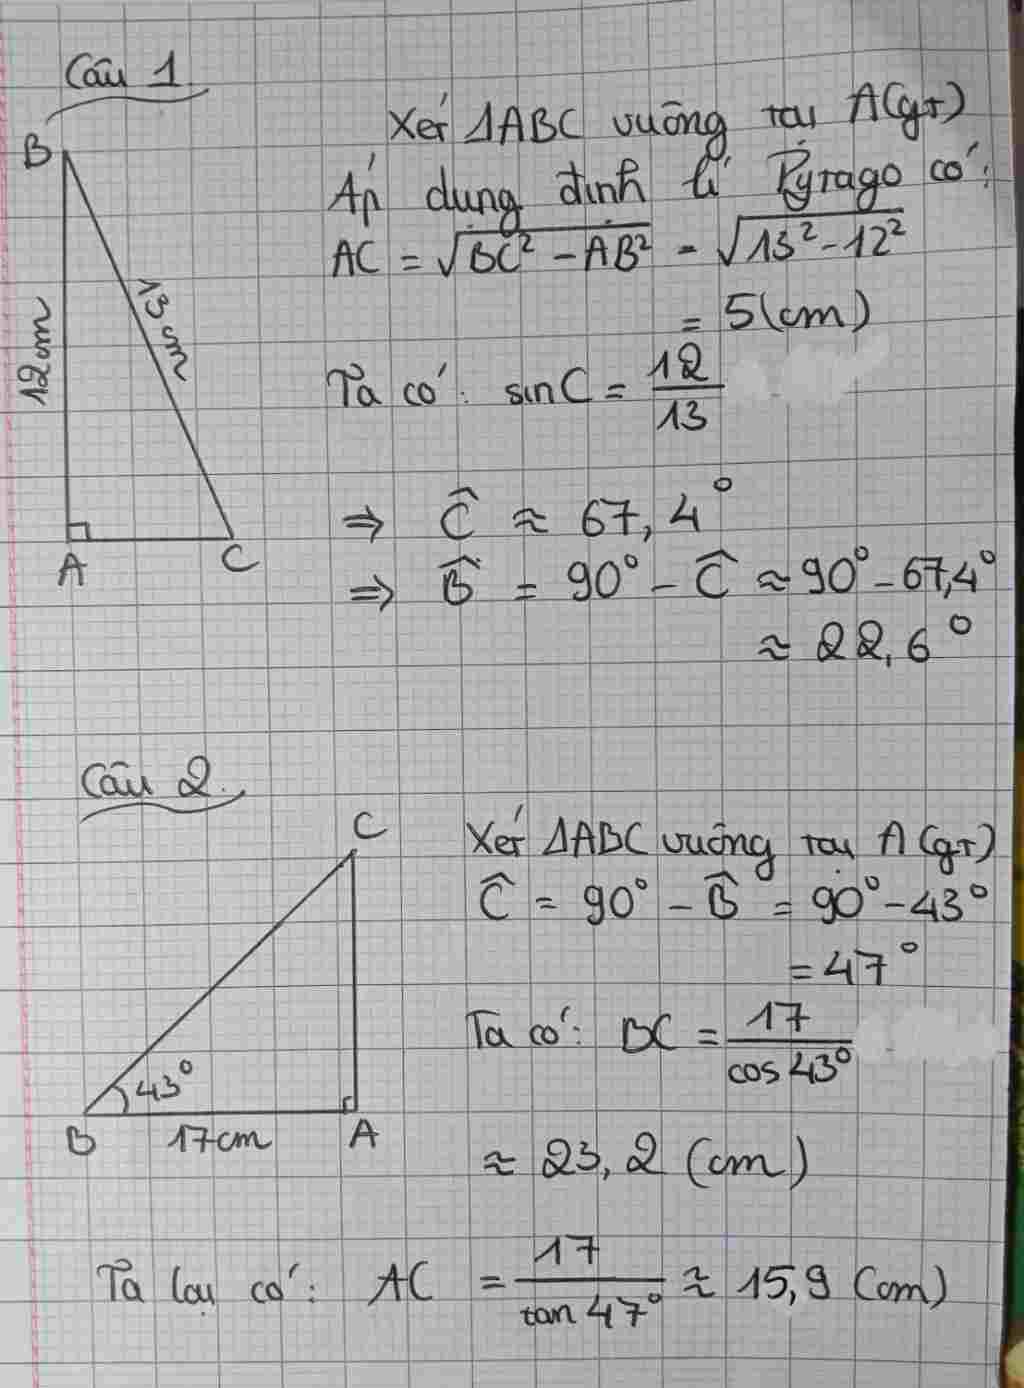 Câu 1
B
12cm
13cm
A
C
Xét ΔABC vuông tại A(gt)
Áp dụng định lí Pytago có:
AC = √(BC² - AB²) = √(13² - 12²)
= 5(cm)
Ta có: sinC = 12/13
⇒ Ĉ ≈ 67,4°
⇒ B̂ = 90° - Ĉ ≈ 90° - 67,4°
≈ 22,6°
Câu 2.
C
43°
B
17cm
A
Xét ΔABC vuông tại A (gt)
Ĉ = 90° - B̂ = 90° - 43°
= 47°
Ta có: BC = 17/cos 43°
≈ 23,2 (cm)
Ta lại có: AC = 17/tan 47° ≈ 15,9 (cm)